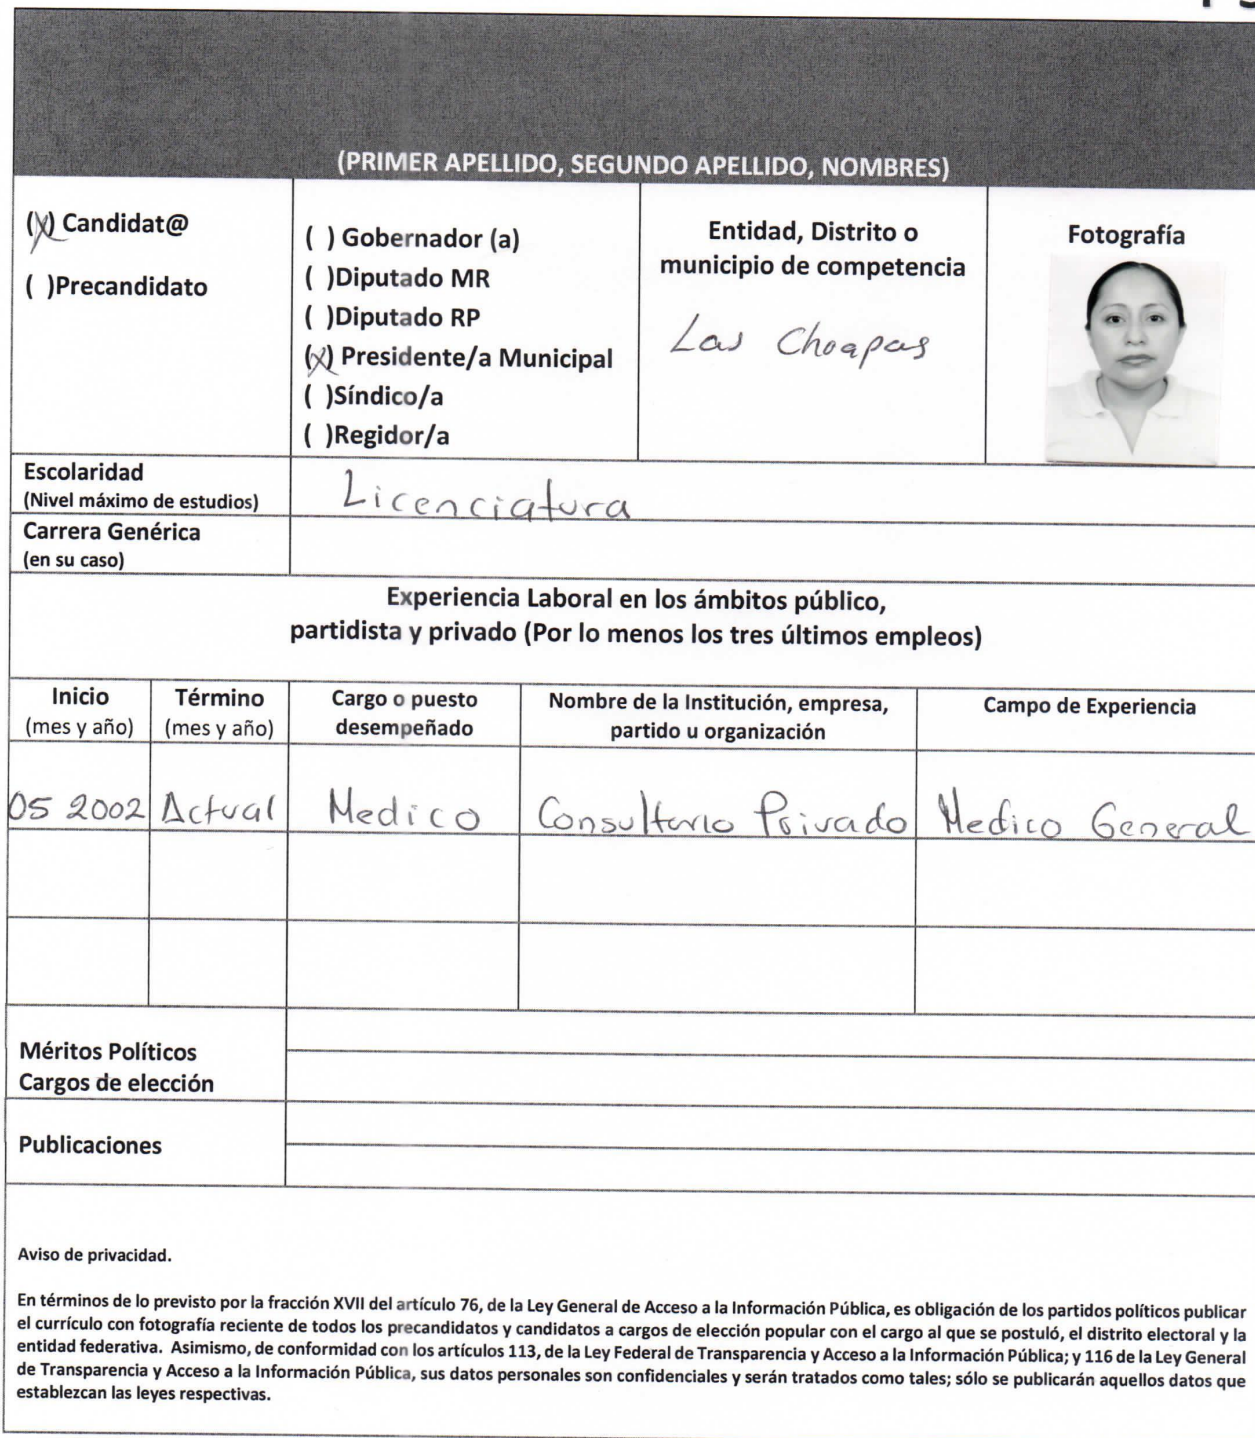 (PRIMER APELLIDO, SEGUNDO APELLIDO, NOMBRES)
(X) Candidat@
( )Precandidato
( ) Gobernador (a)
( )Diputado MR
( )Diputado RP
(X) Presidente/a Municipal
( )Síndico/a
( )Regidor/a
Entidad, Distrito o
municipio de competencia
Las Choapas
Fotografía
Escolaridad
(Nivel máximo de estudios)
Licenciatura
Carrera Genérica
(en su caso)
Experiencia Laboral en los ámbitos público,
partidista y privado (Por lo menos los tres últimos empleos)
Inicio
(mes y año)
Término
(mes y año)
Cargo o puesto
desempeñado
Nombre de la Institución, empresa,
partido u organización
Campo de Experiencia
05 2002 Actual Medico Consultorio Privado Medico General
Méritos Políticos
Cargos de elección
Publicaciones
Aviso de privacidad.
En términos de lo previsto por la fracción XVII del artículo 76, de la Ley General de Acceso a la Información Pública, es obligación de los partidos políticos publicar
el currículo con fotografía reciente de todos los precandidatos y candidatos a cargos de elección popular con el cargo al que se postuló, el distrito electoral y la
entidad federativa. Asimismo, de conformidad con los artículos 113, de la Ley Federal de Transparencia y Acceso a la Información Pública; y 116 de la Ley General
de Transparencia y Acceso a la Información Pública, sus datos personales son confidenciales y serán tratados como tales; sólo se publicarán aquellos datos que
establezcan las leyes respectivas.